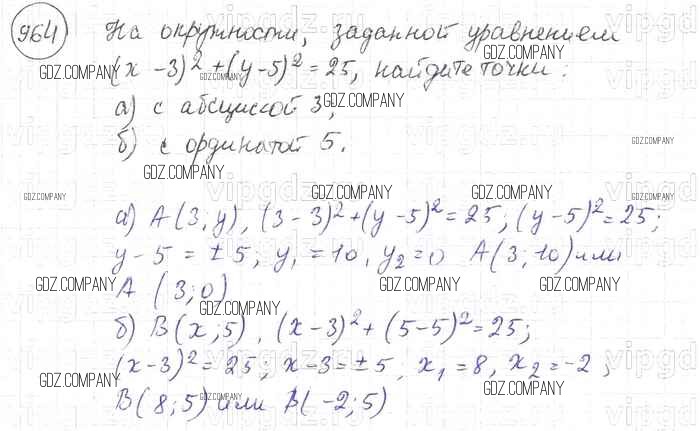 964 На окружности, заданной уравнением
(x - 3)² + (y - 5)² = 25, найдите точки:
а) с абсциссой 3,
б) с ординатой 5.
а) A(3, y), (3 - 3)² + (y - 5)² = 25; (y - 5)² = 25;
y - 5 = ± 5, y₁ = 10, y₂ = 0 A(3; 10) или
A (3; 0)
б) B(x; 5), (x - 3)² + (5 - 5)² = 25;
(x - 3)² = 25; x - 3 = ± 5, x₁ = 8, x₂ = -2;
B(8; 5) или B(-2; 5)
GDZ.COMPANY
vipgdz.ru